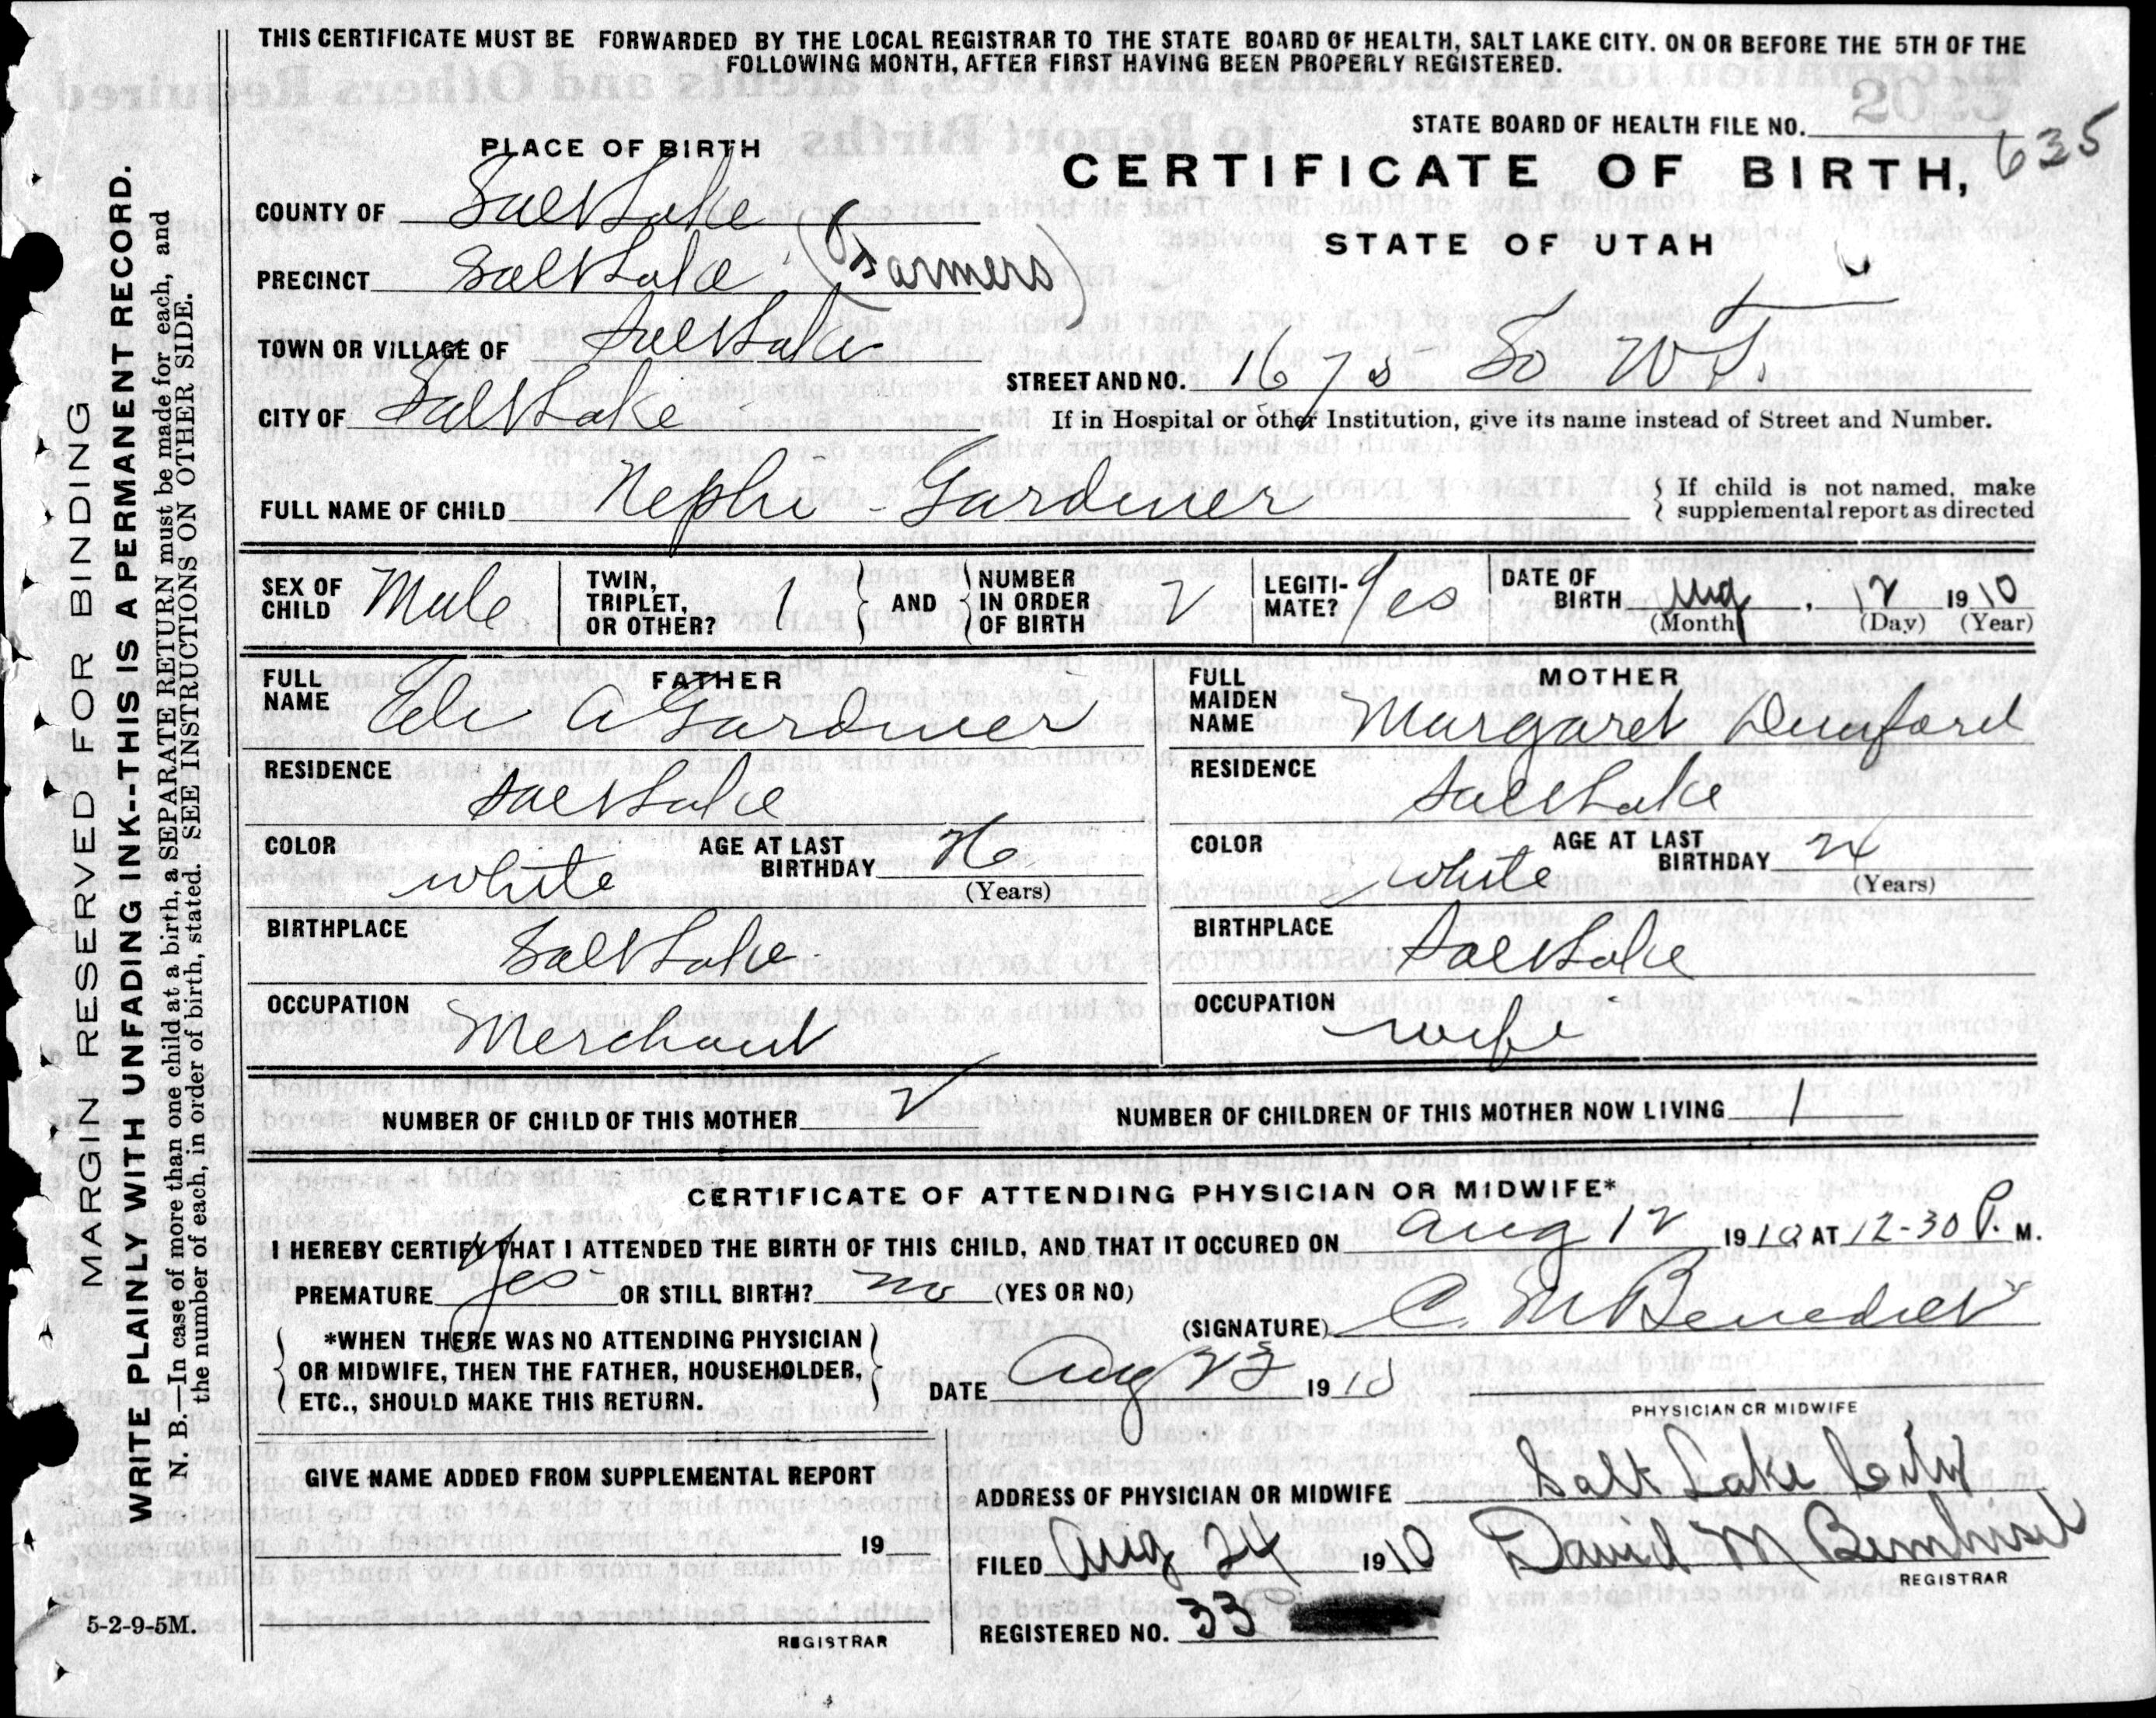 THIS CERTIFICATE MUST BE FORWARDED BY THE LOCAL REGISTRAR TO THE STATE BOARD OF HEALTH, SALT LAKE CITY. ON OR BEFORE THE 5TH OF THE
FOLLOWING MONTH, AFTER FIRST HAVING BEEN PROPERLY REGISTERED.
STATE BOARD OF HEALTH FILE NO.
635
PLACE OF BIRTH
CERTIFICATE OF BIRTH,
STATE OF UTAH
COUNTY OF Salt Lake
PRECINCT Salt Lake (Farmers)
TOWN OR VILLAGE OF Salt Lake
STREET AND NO. 1675 So W T.
CITY OF Salt Lake
If in Hospital or other Institution, give its name instead of Street and Number.
FULL NAME OF CHILD Nephi - Gardiner
{ If child is not named, make
supplemental report as directed
SEX OF CHILD Male
TWIN, TRIPLET, OR OTHER? 1 } AND { NUMBER IN ORDER OF BIRTH 2
LEGITIMATE? Yes
DATE OF BIRTH Aug, 12 1910
(Month) (Day) (Year)
FATHER
FULL NAME Eli A Gardiner
RESIDENCE Salt Lake
COLOR white AGE AT LAST BIRTHDAY 26
(Years)
BIRTHPLACE Salt Lake
OCCUPATION Merchant
MOTHER
FULL MAIDEN NAME Margaret Dunford
RESIDENCE Salt Lake
COLOR white AGE AT LAST BIRTHDAY 24
(Years)
BIRTHPLACE Salt Lake
OCCUPATION wife
NUMBER OF CHILD OF THIS MOTHER 2 NUMBER OF CHILDREN OF THIS MOTHER NOW LIVING 1
CERTIFICATE OF ATTENDING PHYSICIAN OR MIDWIFE*
I HEREBY CERTIFY THAT I ATTENDED THE BIRTH OF THIS CHILD, AND THAT IT OCCURED ON Aug 12 1910 AT 12-30 P. M.
PREMATURE Yes OR STILL BIRTH? no (YES OR NO)
(SIGNATURE) C. M Benedict
{ *WHEN THERE WAS NO ATTENDING PHYSICIAN
OR MIDWIFE, THEN THE FATHER, HOUSEHOLDER,
ETC., SHOULD MAKE THIS RETURN. }
DATE Aug 23 1910
PHYSICIAN OR MIDWIFE
GIVE NAME ADDED FROM SUPPLEMENTAL REPORT
19
REGISTRAR
ADDRESS OF PHYSICIAN OR MIDWIFE Salt Lake City
FILED Aug 24 1910 David M
REGISTRAR
REGISTERED NO. 33
MARGIN RESERVED FOR BINDING
WRITE PLAINLY WITH UNFADING INK--THIS IS A PERMANENT RECORD.
N. B.—In case of more than one child at a birth, a SEPARATE RETURN must be made for each, and
the number of each, in order of birth, stated. SEE INSTRUCTIONS ON OTHER SIDE.
5-2-9-5M.